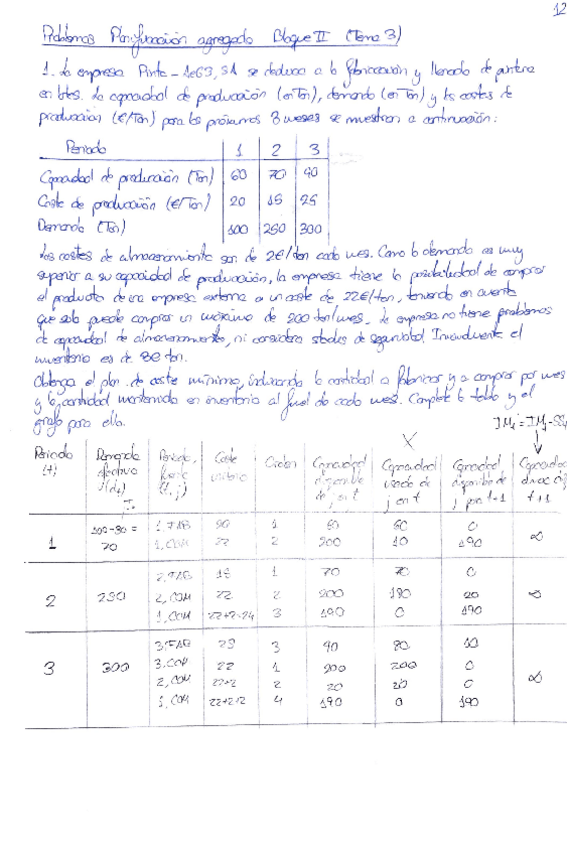 12
Problemas Planificación agregada Bloque II (Tema 3)
1. La empresa Pinta-1eG3, SA se dedica a la fabricación y llenado de pintura
en botes. La capacidad de producción (en Ton), demanda (en Ton) y los costes de
producción (€/Ton) para los próximos 3 meses se muestran a continuación:
Periodo 1 2 3
Capacidad de producción (Ton) 60 70 90
Coste de producción (€/Ton) 20 15 25
Demanda (Ton) 100 250 300
Los costes de almacenamiento son de 2€/ton cada mes. Como la demanda es muy
superior a su capacidad de producción, la empresa tiene la posibilidad de comprar
el producto de una empresa externa a un coste de 22€/ton, teniendo en cuenta
que solo puede comprar un máximo de 200 ton/mes. La empresa no tiene problemas
de capacidad de almacenamiento, ni considera stocks de seguridad. Inicialmente el
inventario es de 30 ton.
Obtenga el plan de coste mínimo, indicando la cantidad a fabricar y a comprar por mes
y la cantidad mantenida en inventario al final de cada mes. Complete la tabla y el
grafo para ello.
Periodo Demanda Periodo, Coste Orden Capacidad Capacidad Capacidad Capacidad
(t) efectiva fuente unitario disponible usada de disponible de
(i, j) de j en t j en t j para t+1 t+1
100-30 = 1.FAB 20 1 60 60 0
1 70 1,COM 22 2 200 10 190 ∞
2,FAB 15 1 70 70 0
2 250 2,COM 22 2 200 180 20 ∞
1,COM 22+2=24 3 190 0 190
3,FAB 25 3 90 80 10
3 300 3,COM 22 1 200 200 0 ∞
2,COM 22+2 2 20 20 0
1,COM 22+2+2 4 190 0 190